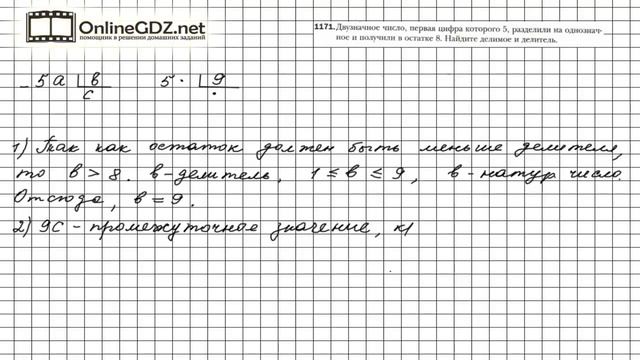 OnlineGDZ.net
помощник в решении домашних заданий
1171. Двузначное число, первая цифра которого 5, разделили на однознач-
ное и получили в остатке 8. Найдите делимое и делитель.
5а в 5· 9
с ·
1) Так как остаток должен быть меньше делителя,
то в > 8. в - делитель, 1 ≤ в ≤ 9, в - натур число.
Отсюда, в = 9.
2) 9с - промежуточное значение, к